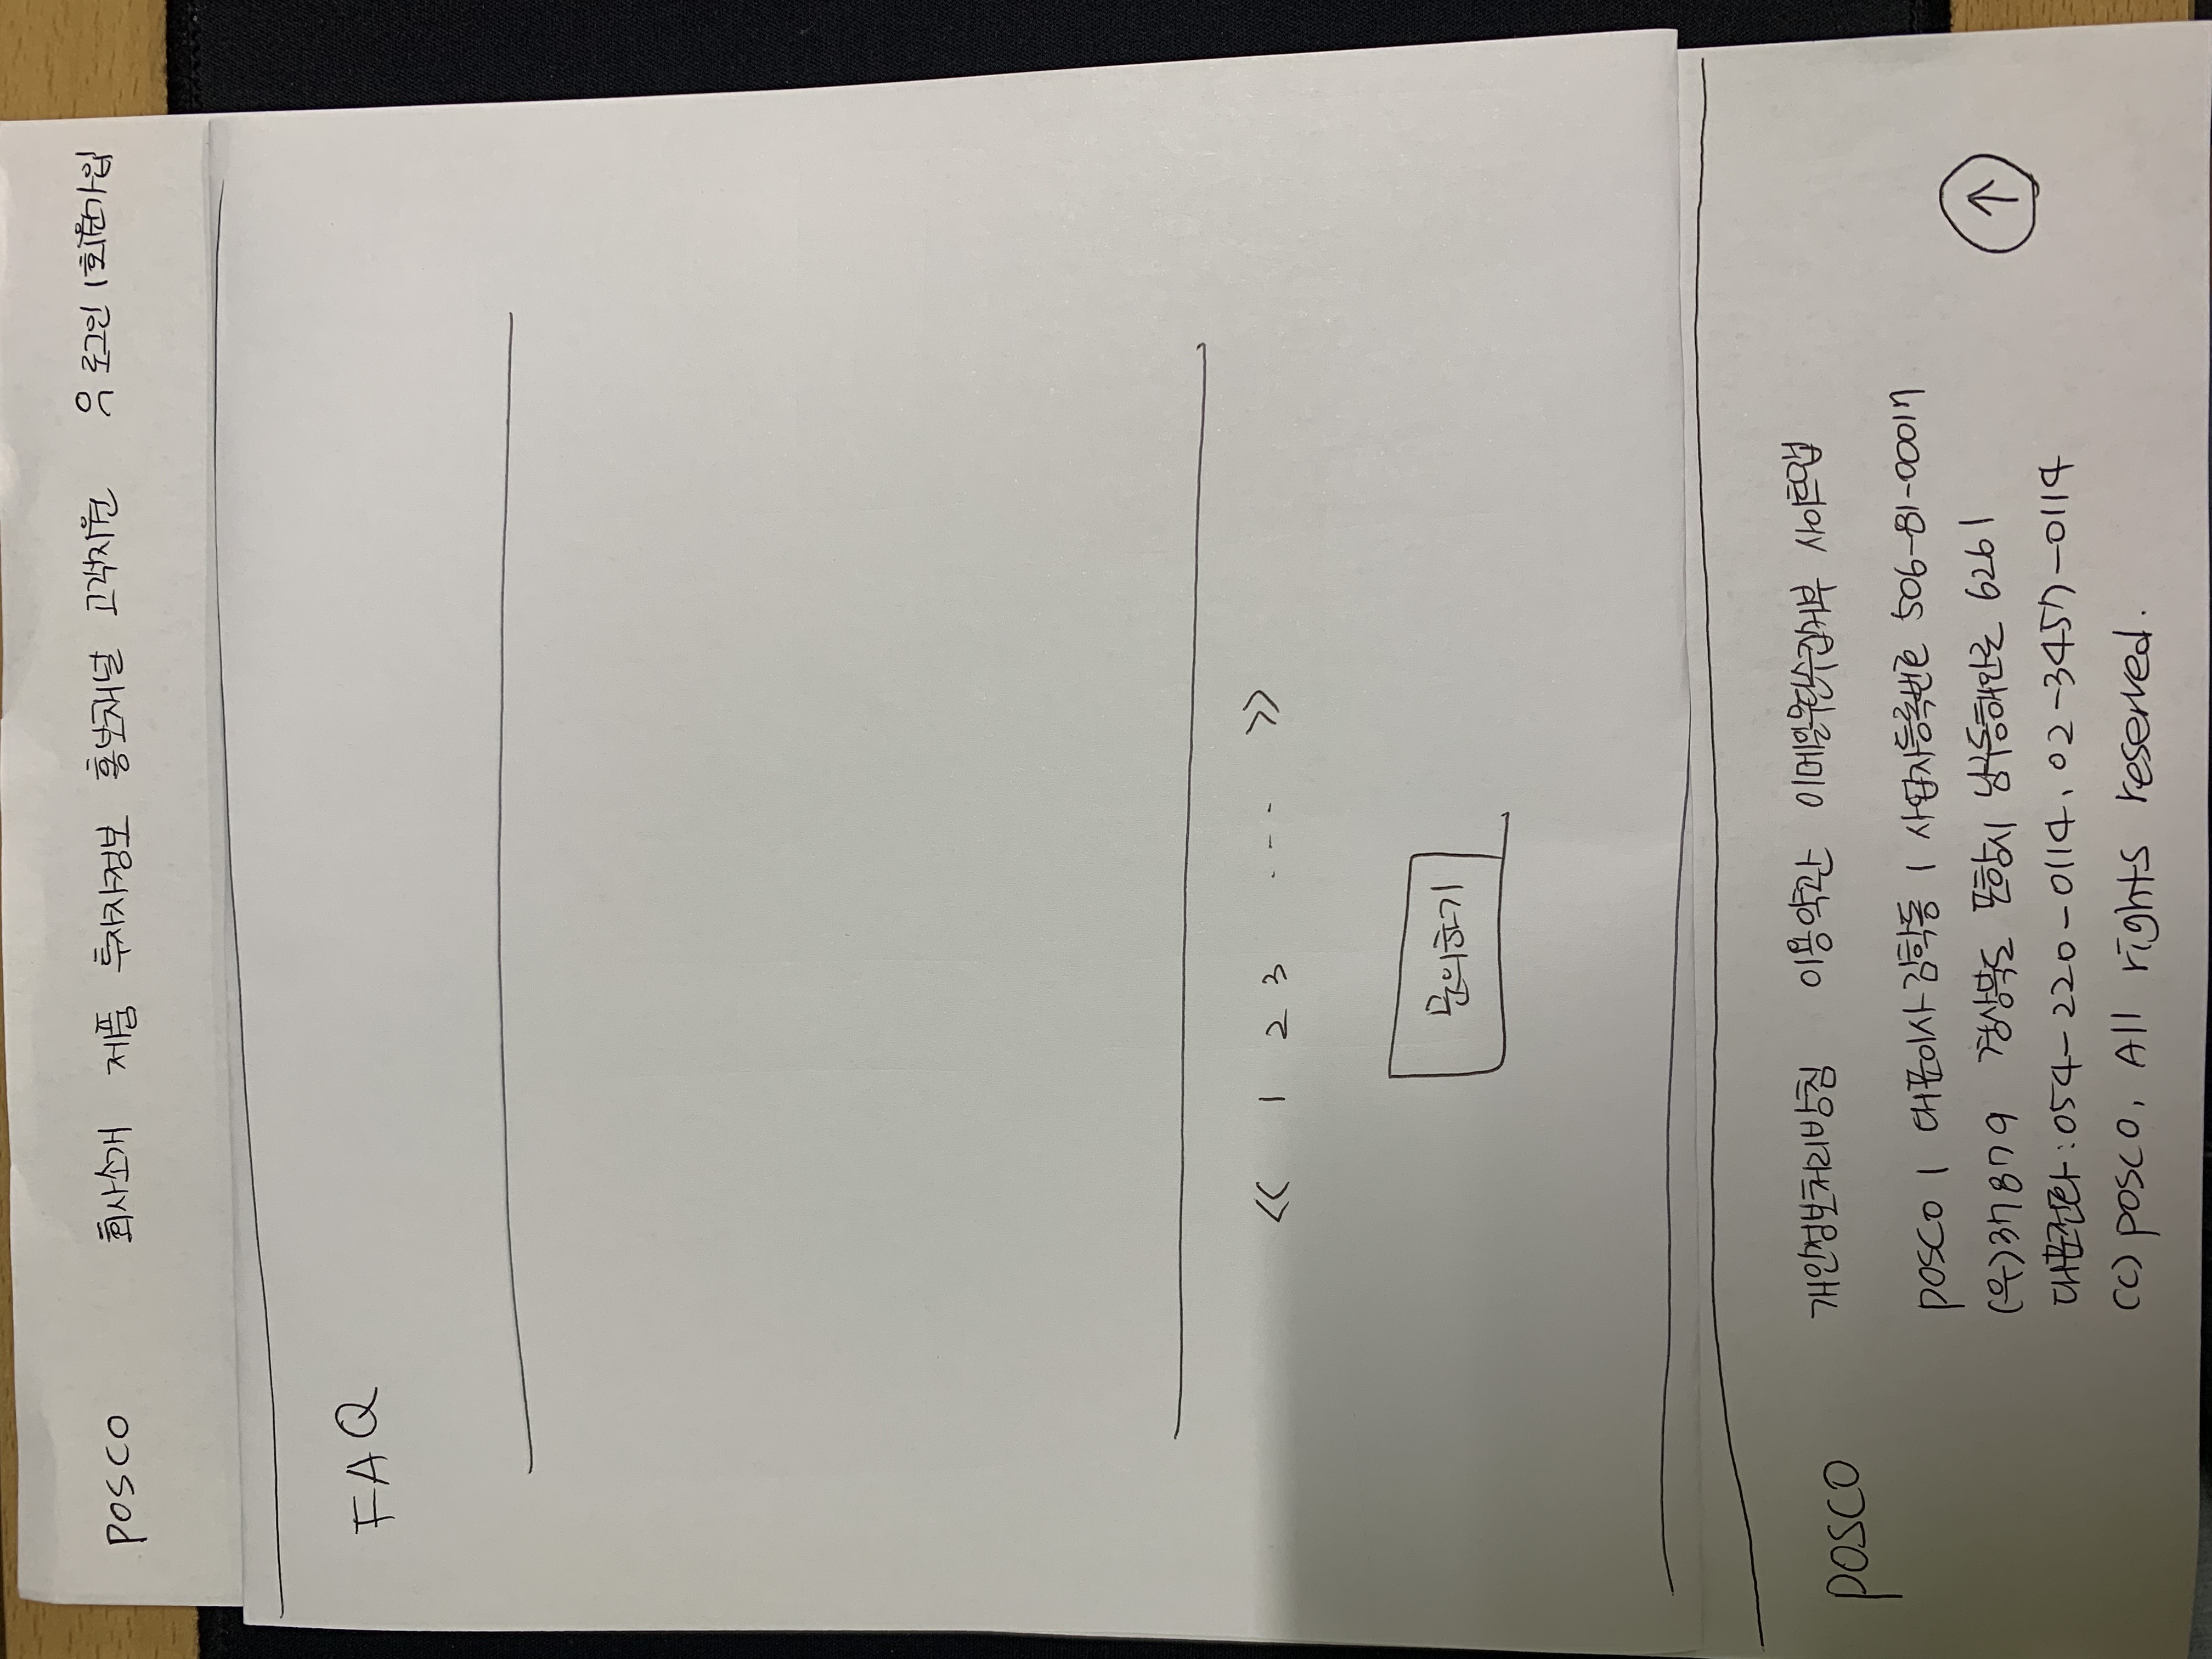 POSCO 회사소개 제품 투자자정보 홍보채널 고객지원 로그인 | 회원가입
FAQ
<< 1 2 3 --- >>
문의하기
POSCO
개인정보처리방침 이용약관 이메일무단수집거부 사이트맵
POSCO | 대표이사 김학동 | 사업자등록번호 506-81-00017
(우)37879 경상북도 포항시 남구동해안로 6261
대표전화 : 054-220-0114, 02-3457-0114
(C) POSCO, All rights reserved.